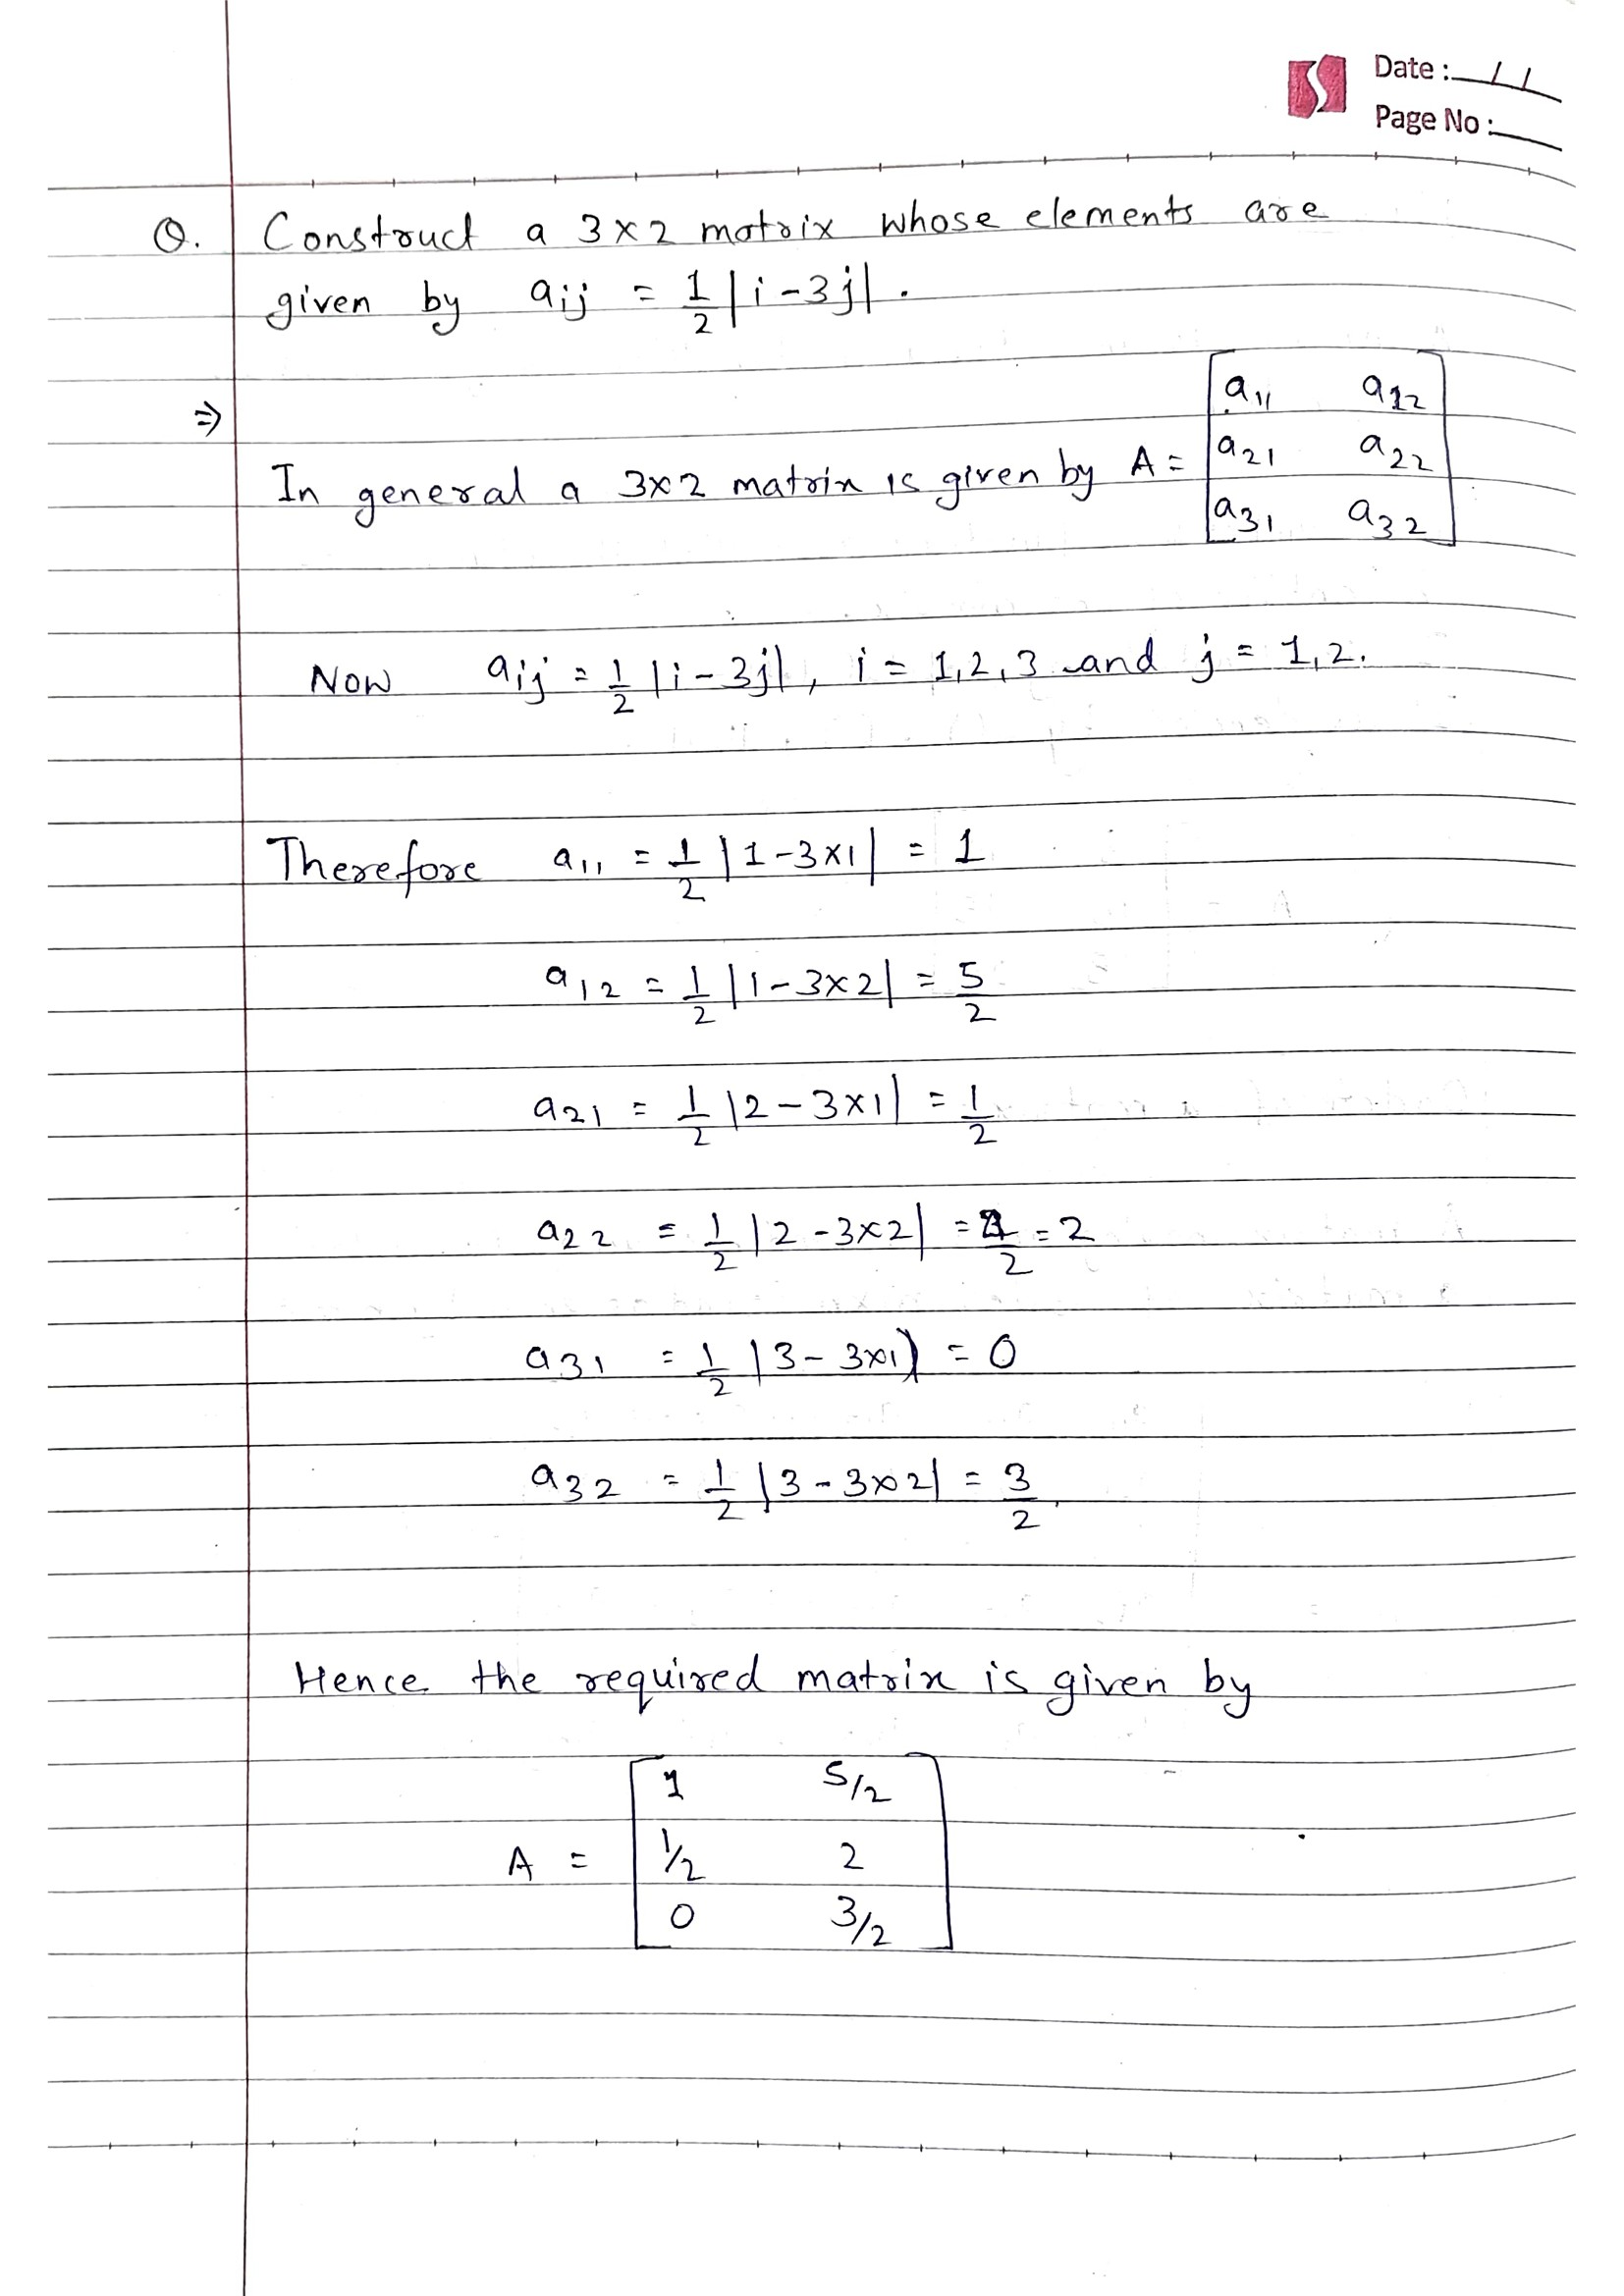 Date : / /
Page No :
Q. Construct a 3 × 2 matrix whose elements are
given by aij = 1/2 |i - 3j|.
⇒ In general a 3×2 matrix is given by A = [a11 a12
a21 a22
a31 a32]
Now aij = 1/2 |i - 3j|, i = 1,2,3 and j = 1,2.
Therefore a11 = 1/2 |1-3×1| = 1
a12 = 1/2 |1-3×2| = 5/2
a21 = 1/2 |2-3×1| = 1/2
a22 = 1/2 |2-3×2| = 4/2 = 2
a31 = 1/2 |3-3×1| = 0
a32 = 1/2 |3-3×2| = 3/2
Hence the required matrix is given by
A = [1 5/2
1/2 2
0 3/2]